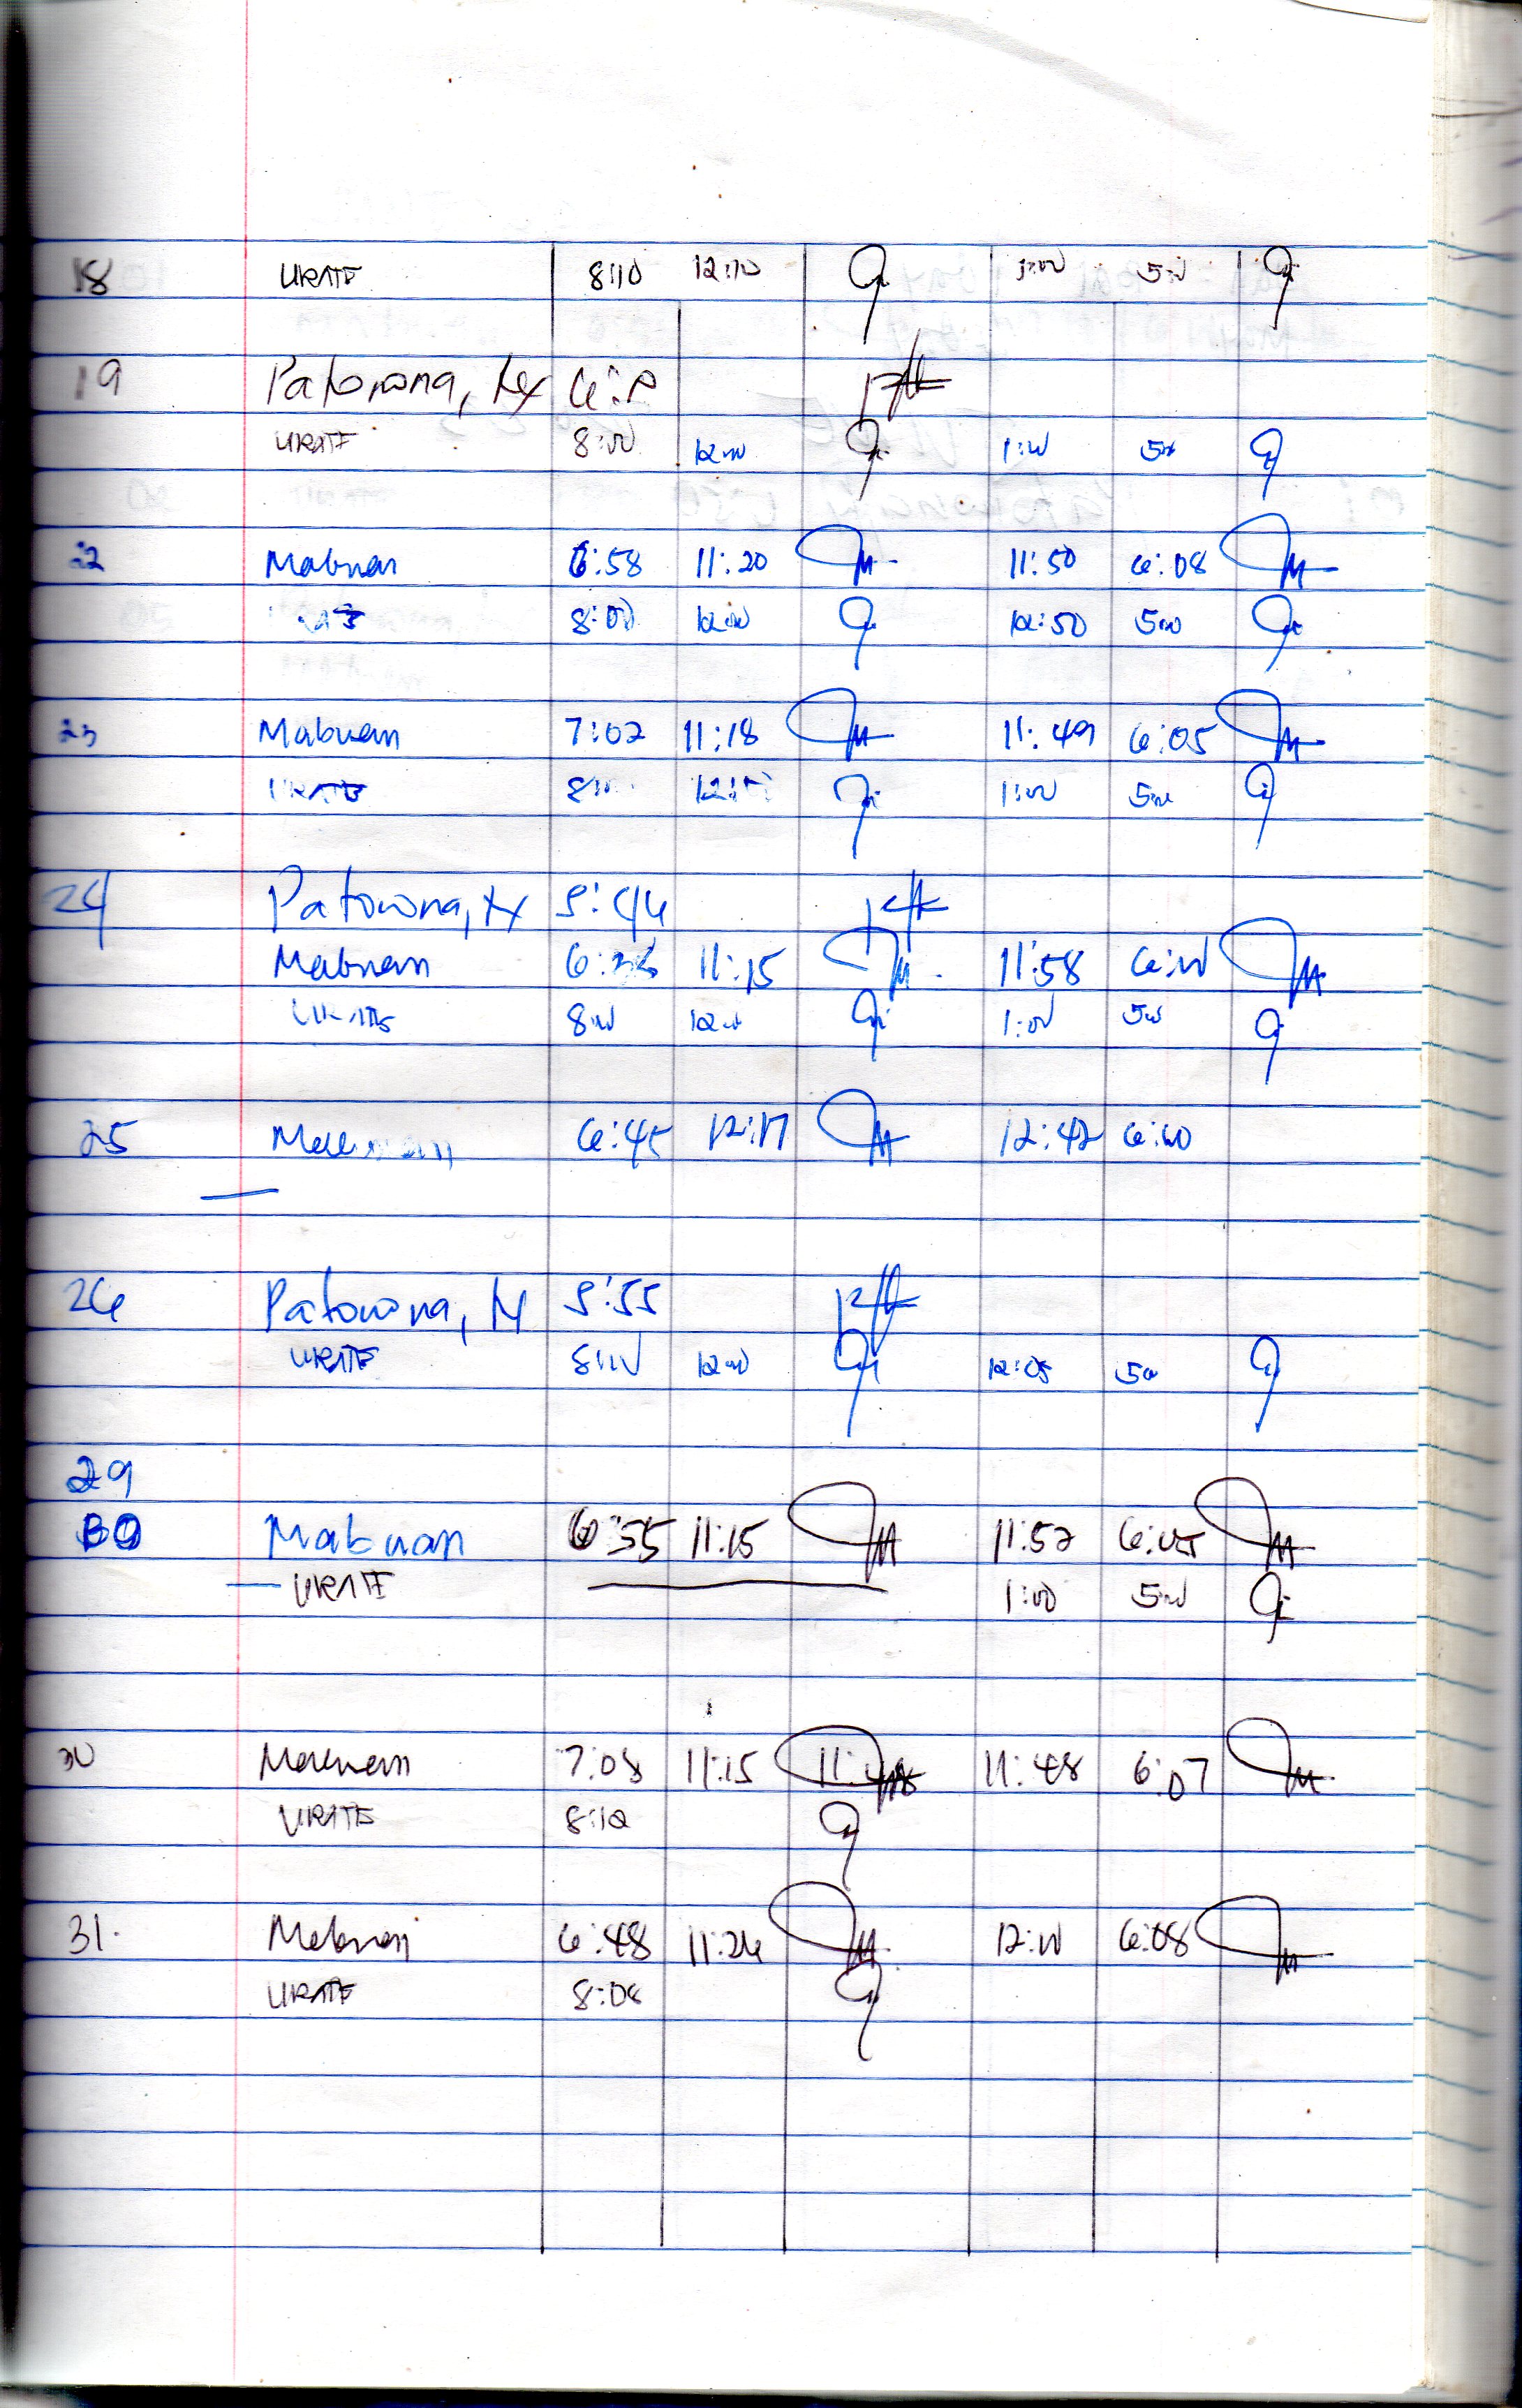 18 URATE 8:10 12:10 1:00 5:00
19 Patonona,
URATE 8:00 12:00 1:00 5:00
22 Mabuan 6:58 11:20 11:50 6:08
8:00 12:00 12:50 5:00
23 Mabuan 7:02 11:18 11:49 6:05
URATE 1:00 5:00
24 Patonona, 5:46
Mabuan 11:15 11:58 6:00
URATE 8:00 12:00 1:00 5:00
25 6:45 12:17 12:42 6:10
26 Patonona, N 5:55
URATE 8:00 12:00 12:05 5:00
29
30 Mabuan 6:55 11:15 11:52 6:05
URATE 1:00 5:00
30 Mabuan 7:08 11:15 11:48 11:48 6:07
URATE 8:10
31. Mabuan 6:48 11:26 12:00 6:08
URATE 8:08